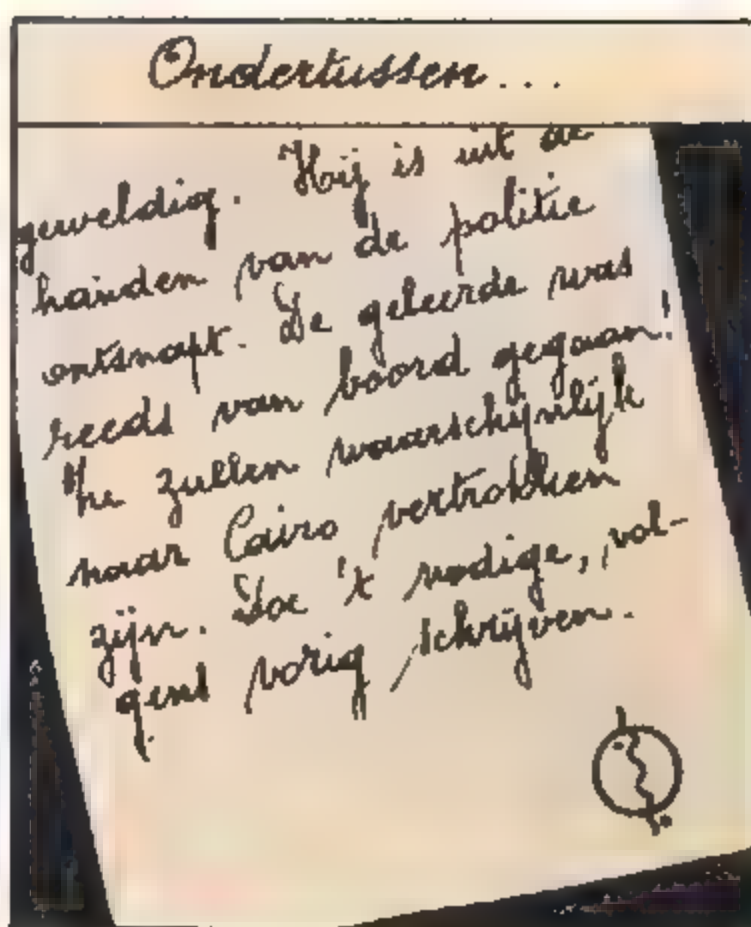 Ondertussen...
geweldig. Hij is uit de
handen van de politie
ontsnapt. De geleerde was
reeds van boord gegaan!
Ze zullen waarschijnlijk
naar Cairo vertrokken
zijn. Doe 't nodige, vol-
gens vorig schrijven.